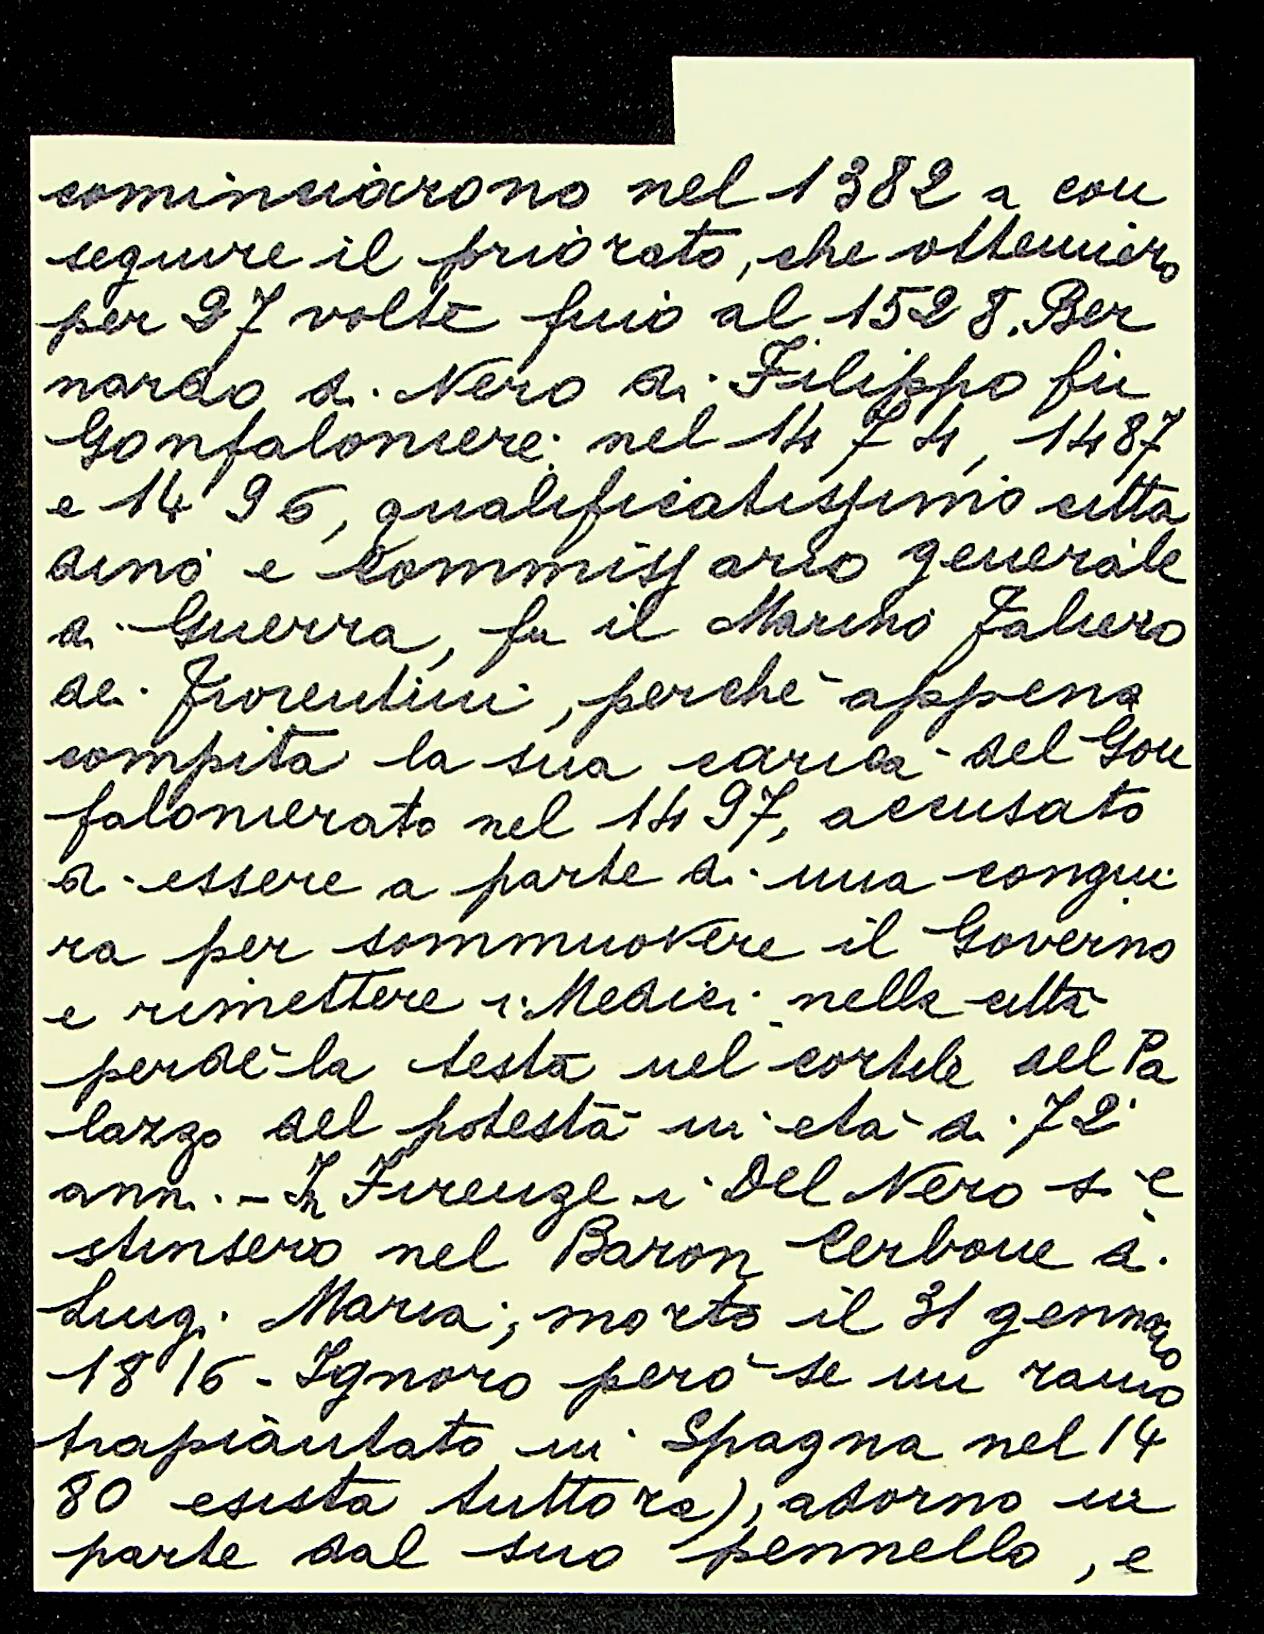 cominciarono nel 1382 a con
seguire il priorato, che ottennero
per 27 volte fino al 1528. Ber
nardo di Nero di Filippo fu
Gonfaloniere nel 1474, 1487
e 1496, qualificatissimo citta
dino e Commissario generale
di Guerra, fu il Marino Faliero
dei Fiorentini, perchè appena
compita la sua carica del Gon
falonierato nel 1497, accusato
di essere a parte di una congiu
ra per sommuovere il Governo
e rimettere i Medici nella città
perdè la testa nel cortile del Pa
lazzo del potestà in età di 72
anni. – In Firenze i Del Nero si e
stinsero nel Baron Cerbone di
Luigi Maria; morto il 31 gennaio
1816 - Ignoro però se un ramo
trapiantato in Spagna nel 14
80 esista tuttora), adorno in
parte dal suo pennello, e